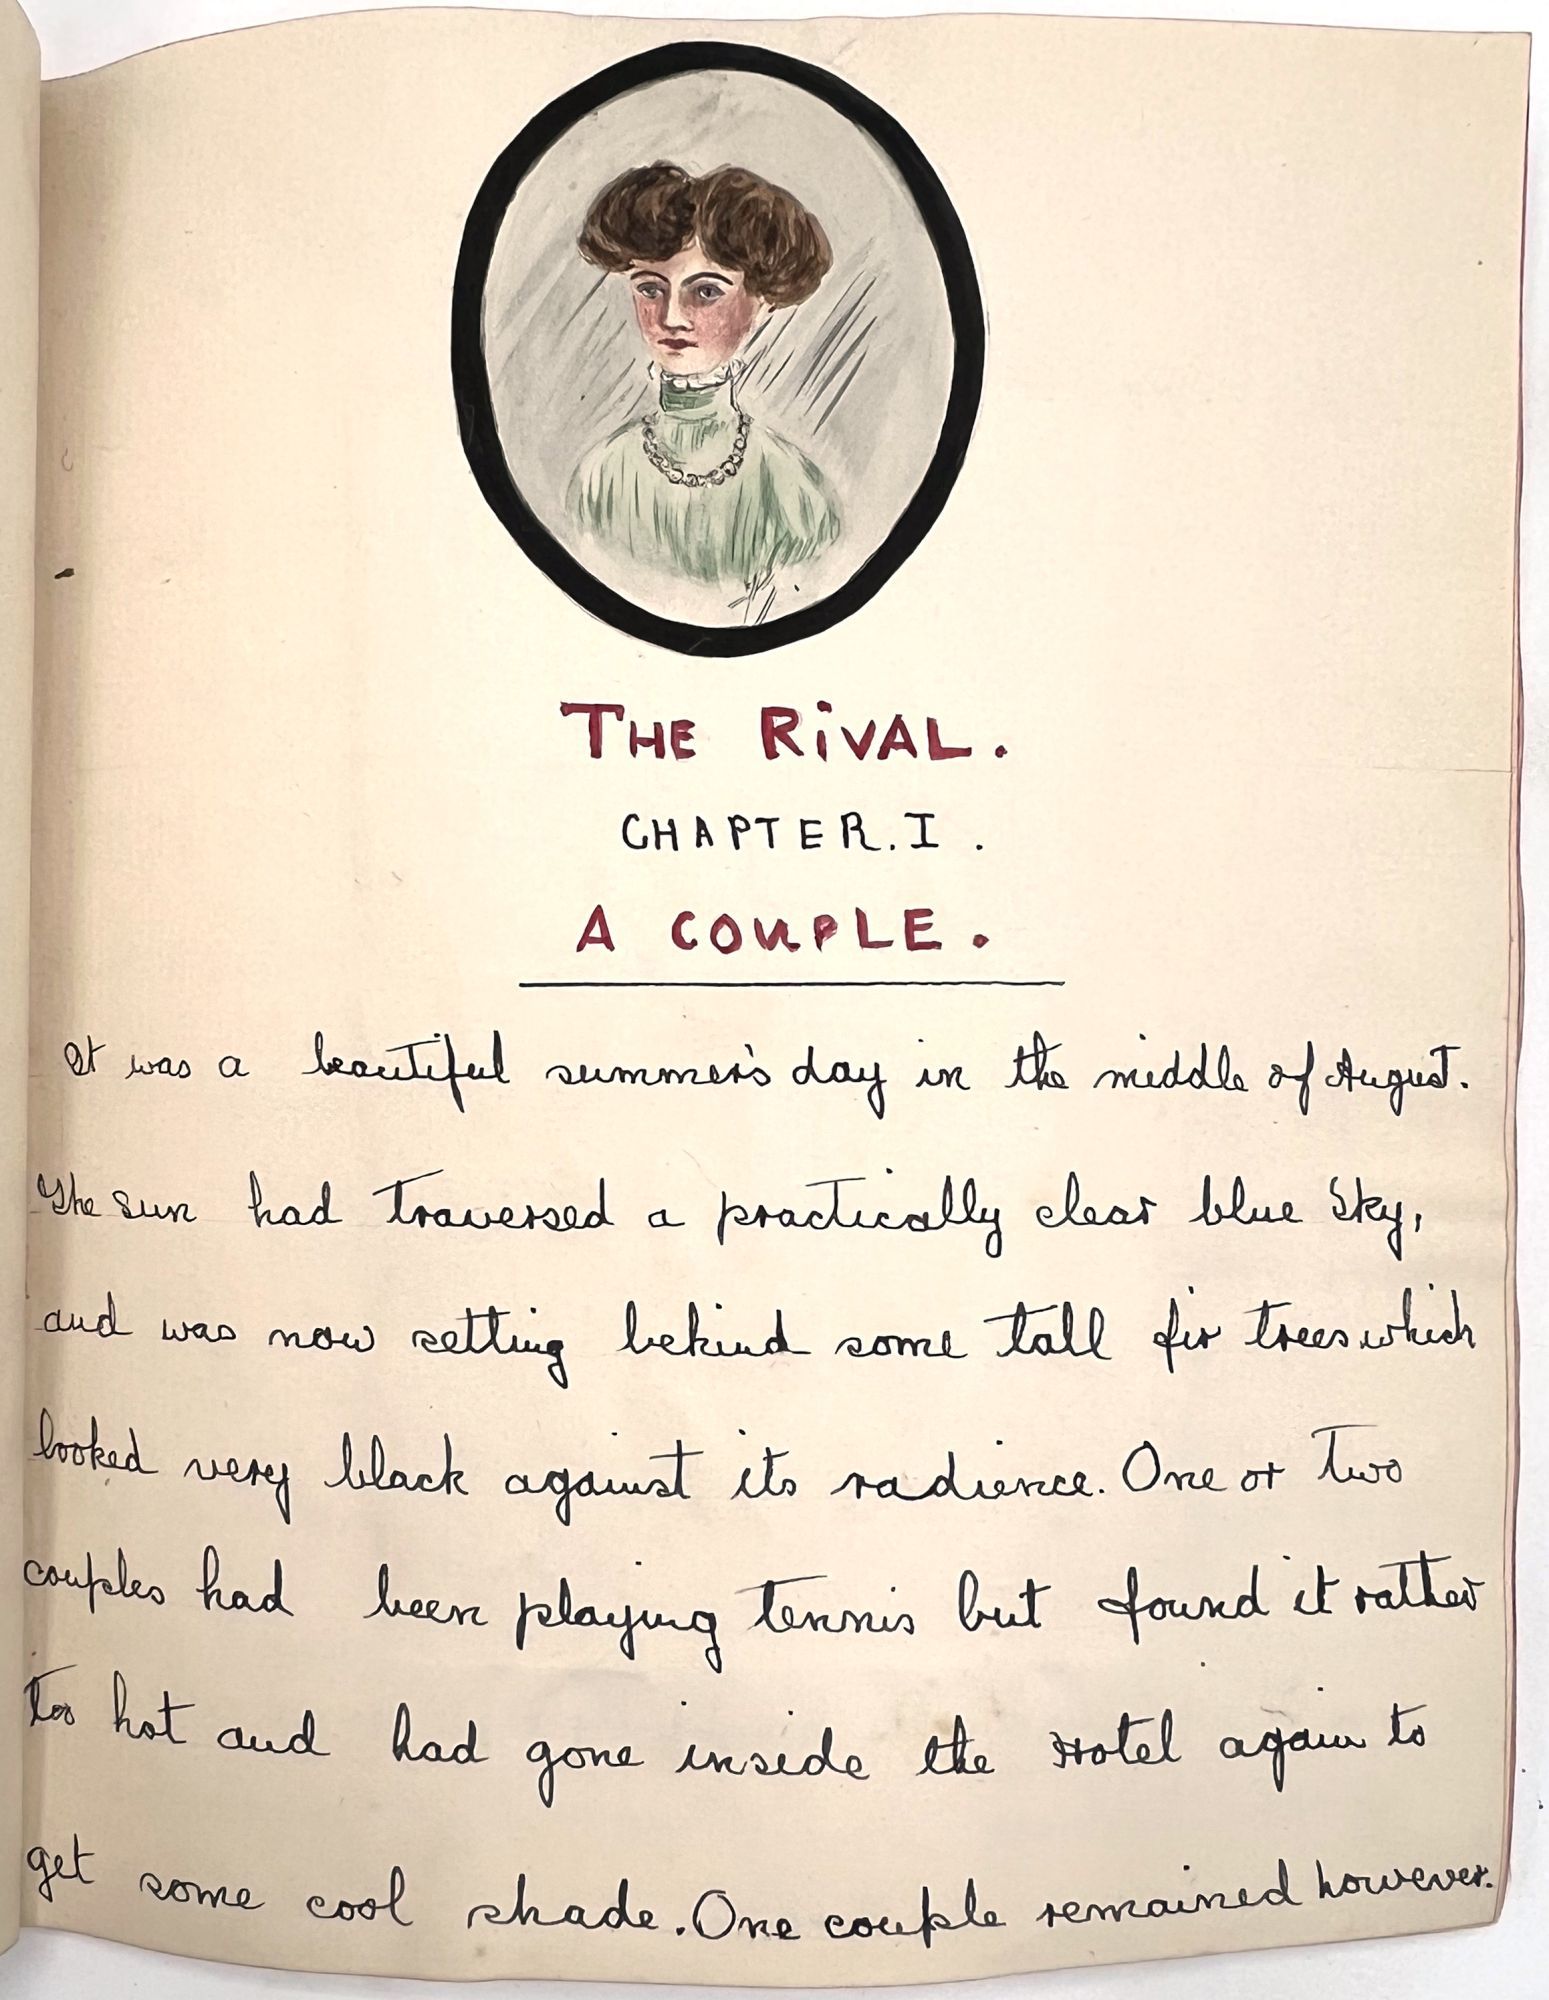 THE RiVAL.
CHAPTER. I .
A COUPLE.
It was a beautiful summer's day in the middle of August.
The sun had traversed a practically clear blue Sky,
and was now setting behind some tall fir trees which
looked very black against its radience. One or two
couples had been playing tennis but found it rather
too hot and had gone inside the Hotel again to
get some cool shade. One couple remained however.